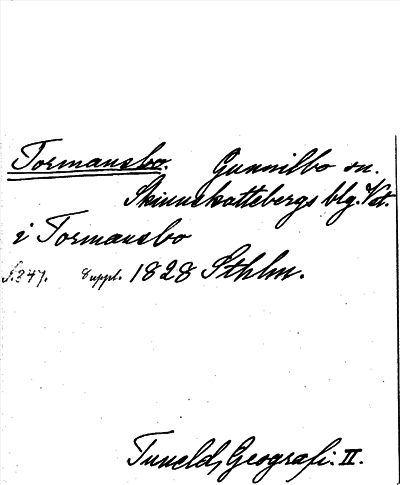 Tormansbo. Gunnilbo sn.
Skinnskattebergs blg. Vst.
i Tormansbo
S. 847. Suppl. 1828 Sthlm.
Tuneld, Geografi. II.